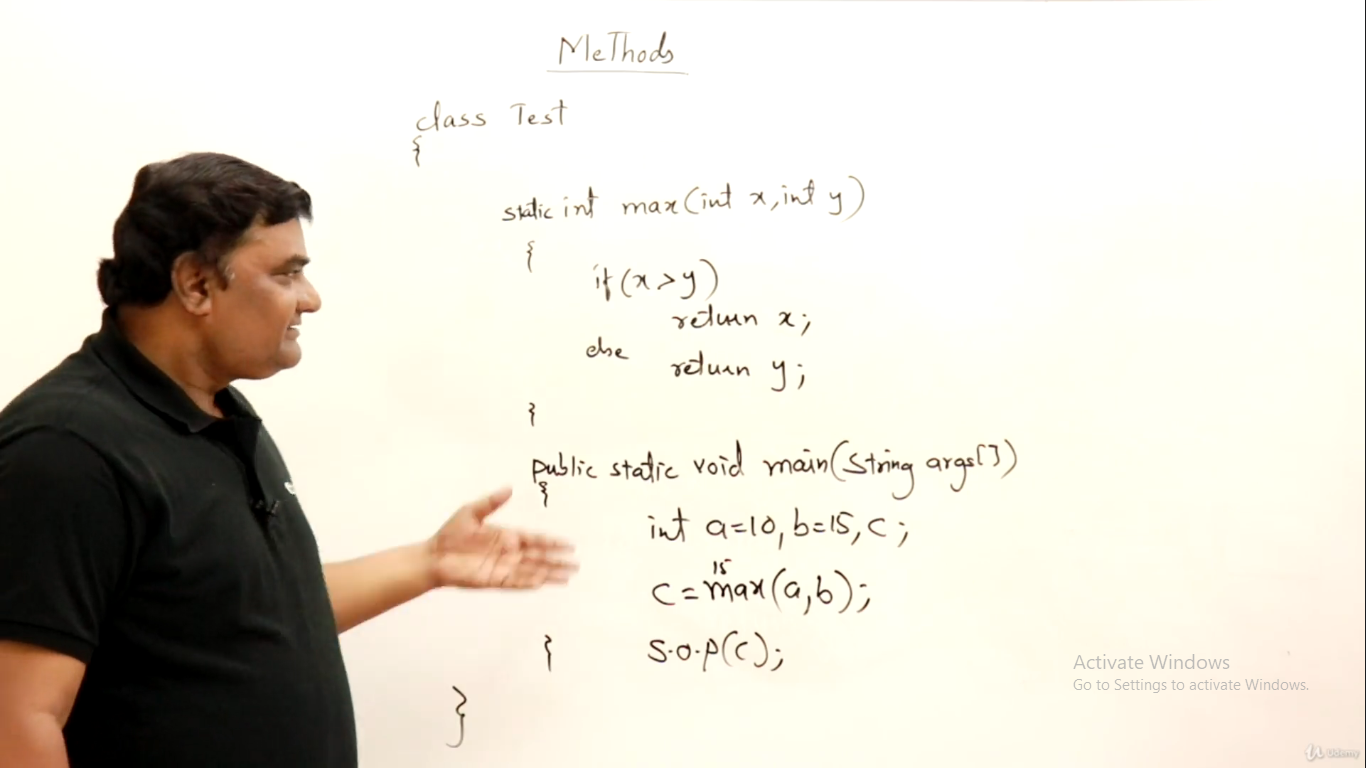 MeThods
class Test
{
static int max(int x, int y)
{
if(x>y)
return x;
else return y;
}
public static void main(String args[])
{
int a=10, b=15, c;
15
c=max(a,b);
} S.O.P(c);
}
Activate Windows
Go to Settings to activate Windows.
Udemy